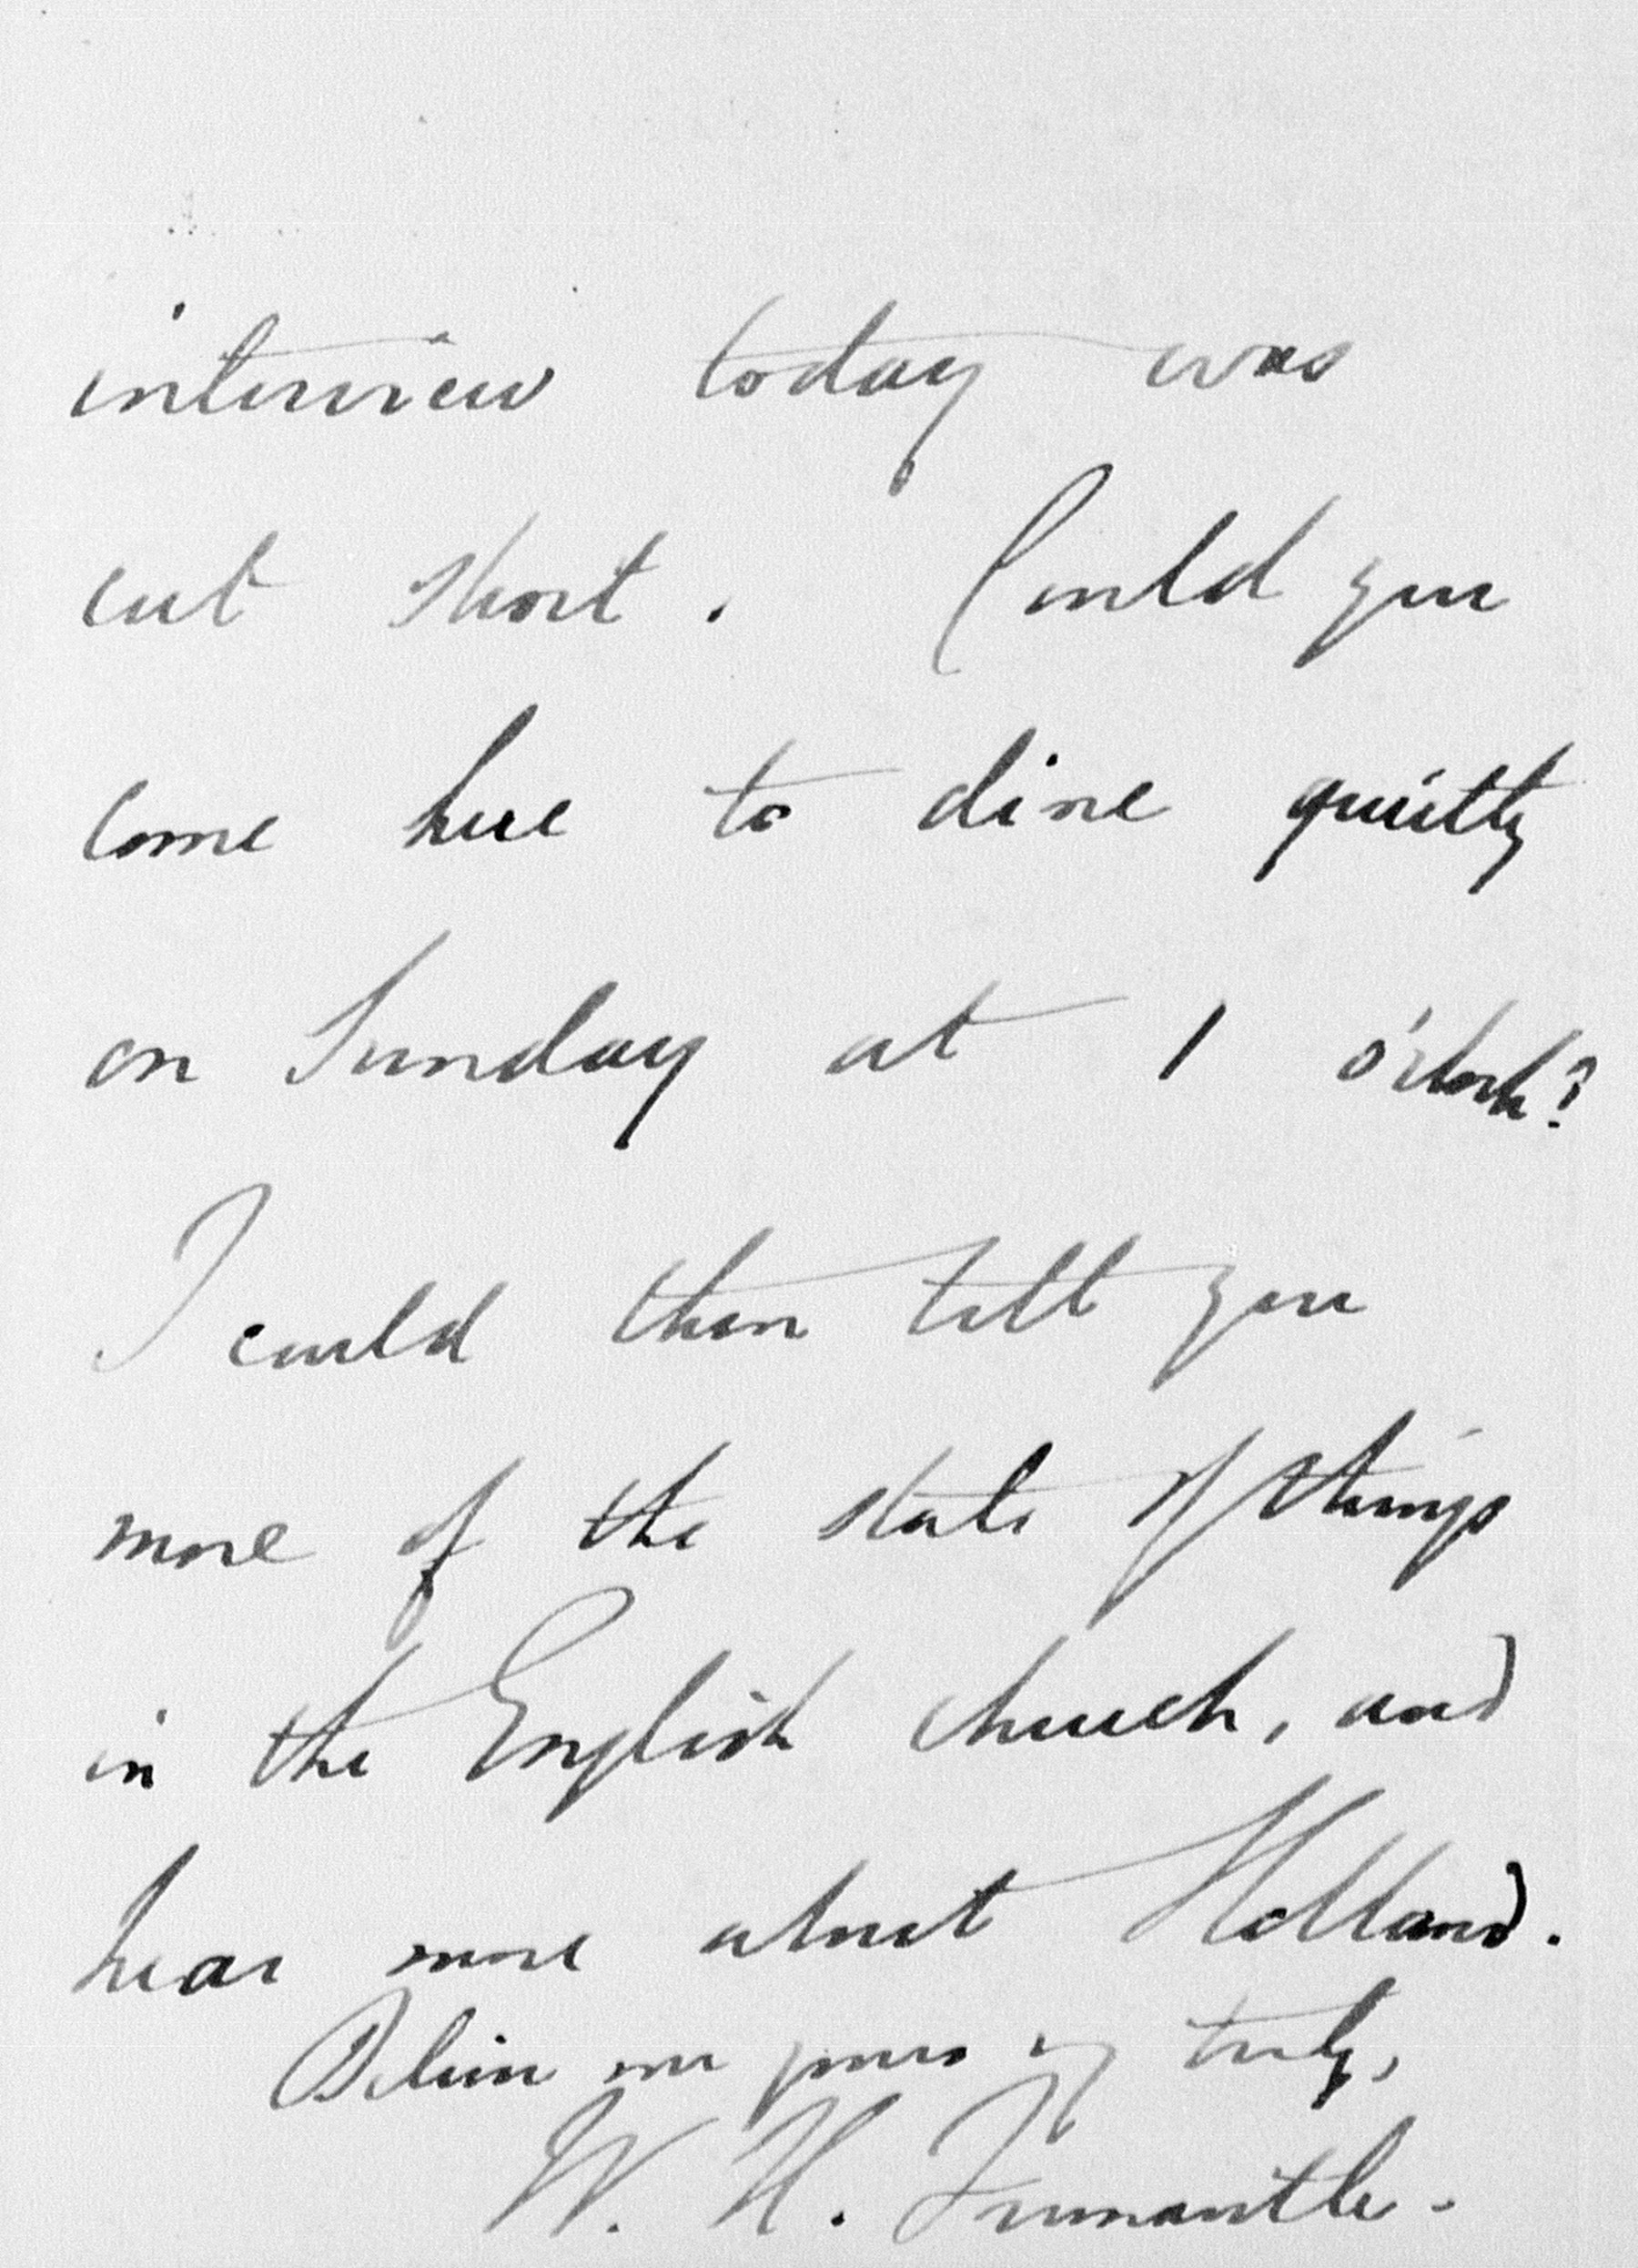 interview today was
cut short. Could you
come here to dine quietly
on Sunday at 1 o'clock?
I could then tell you
more of the state of things
in the English church, and
hear more about Holland.
Believe me yours vy truly,
W. H. Fremantle.